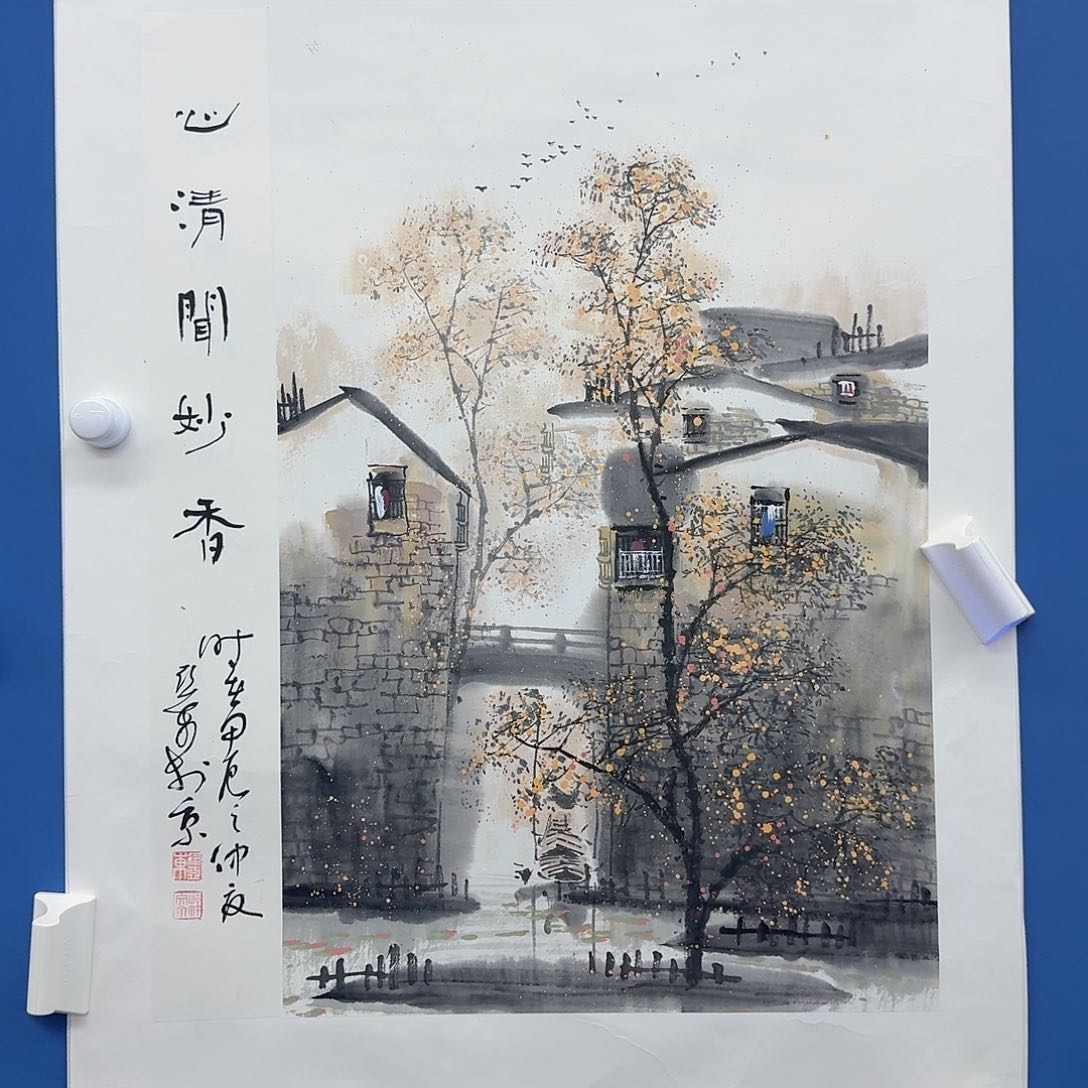 心清聞妙香
时在甲辰之仲夏
于京